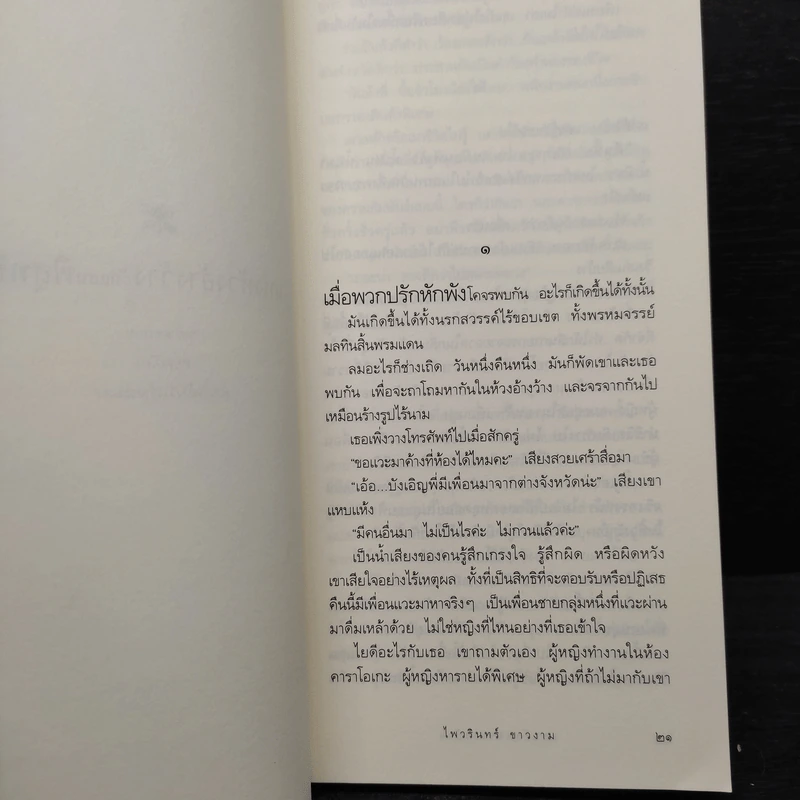 ๑
เมื่อพวกปรักหักพังโคจรพบกัน อะไรก็เกิดขึ้นได้ทั้งนั้น
มันเกิดขึ้นได้ทั้งนรกสวรรค์ไร้ขอบเขต ทั้งพรหมจรรย์
มลทินสิ้นพรมแดน
ลมอะไรก็ช่างเถิด วันหนึ่งคืนหนึ่ง มันก็พัดเขาและเธอ
พบกัน เพื่อจะถาโถมหากันในห้วงอ้างว้าง และจรจากกันไป
เหมือนร้างรูปไร้นาม
เธอเพิ่งวางโทรศัพท์ไปเมื่อสักครู่
“ขอแวะมาค้างที่ห้องได้ไหมคะ” เสียงสวยเศร้าสื่อมา
“เอ้อ...บังเอิญพี่มีเพื่อนมาจากต่างจังหวัดน่ะ” เสียงเขา
แหบแห้ง
“มีคนอื่นมา ไม่เป็นไรค่ะ ไม่กวนแล้วค่ะ”
เป็นน้ำเสียงของคนรู้สึกเกรงใจ รู้สึกผิด หรือผิดหวัง
เขาเสียใจอย่างไร้เหตุผล ทั้งที่เป็นสิทธิที่จะตอบรับหรือปฏิเสธ
คืนนี้มีเพื่อนแวะมาหาจริงๆ เป็นเพื่อนชายกลุ่มหนึ่งที่แวะผ่าน
มาดื่มเหล้าด้วย ไม่ใช่หญิงที่ไหนอย่างที่เธอเข้าใจ
ไยดีอะไรกับเธอ เขาถามตัวเอง ผู้หญิงทำงานในห้อง
คาราโอเกะ ผู้หญิงหารายได้พิเศษ ผู้หญิงที่ถ้าไม่มากับเขา
ไพวรินทร์ ขาวงาม
๒๑